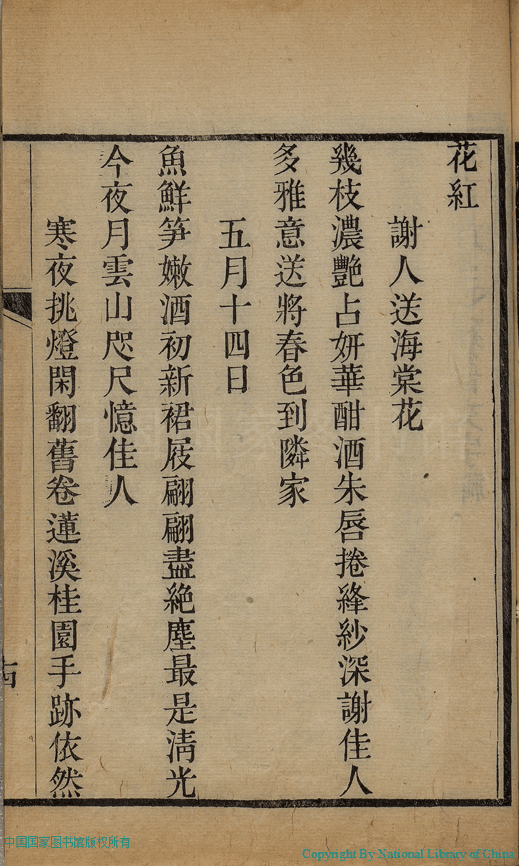 花紅
謝人送海棠花
幾枝濃艷占妍華酣酒朱唇捲絳紗深謝佳人
多雅意送將春色到隣家
五月十四日
魚鮮笋嫩酒初新裙屐翩翩盡絶塵最是清光
今夜月雲山咫尺憶佳人
寒夜挑燈閑翻舊卷蓮溪桂園手跡依然
十四
中国国家图书馆版权所有
Copyright By National Library of China